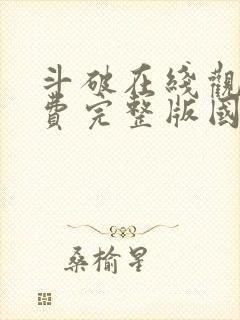 斗破在綫觀
費完整版國
桑榆星